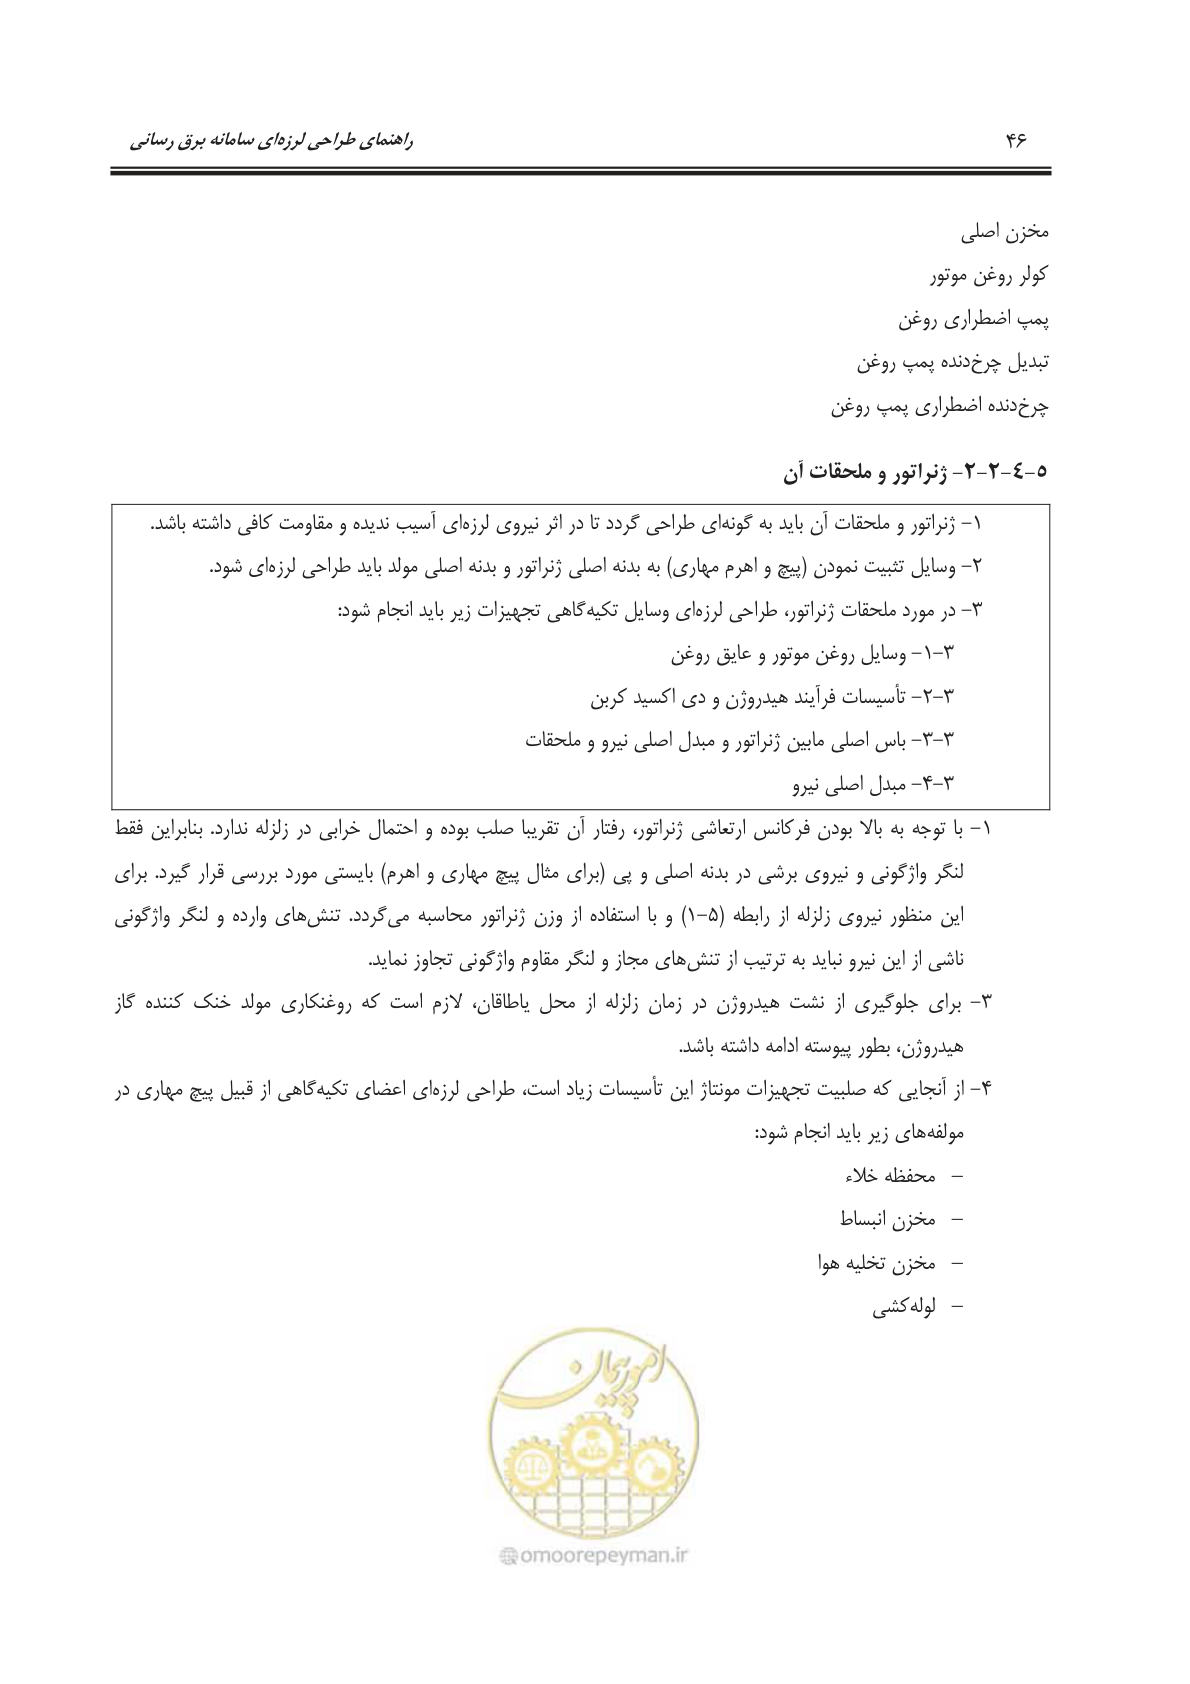 ۴۶
راهنمای طراحی لرزه‌ای سامانه برق رسانی
مخزن اصلی
کولر روغن موتور
پمپ اضطراری روغن
تبدیل چرخ‌دنده پمپ روغن
چرخ‌دنده اضطراری پمپ روغن
۵-۴-۲-۲- ژنراتور و ملحقات آن
۱- ژنراتور و ملحقات آن باید به گونه‌ای طراحی گردد تا در اثر نیروی لرزه‌ای آسیب ندیده و مقاومت کافی داشته باشد.
۲- وسایل تثبیت نمودن (پیچ و اهرم مهاری) به بدنه اصلی ژنراتور و بدنه اصلی مولد باید طراحی لرزه‌ای شود.
۳- در مورد ملحقات ژنراتور، طراحی لرزه‌ای وسایل تکیه‌گاهی تجهیزات زیر باید انجام شود:
۳-۱- وسایل روغن موتور و عایق روغن
۳-۲- تأسیسات فرآیند هیدروژن و دی اکسید کربن
۳-۳- باس اصلی مابین ژنراتور و مبدل اصلی نیرو و ملحقات
۳-۴- مبدل اصلی نیرو
۱- با توجه به بالا بودن فرکانس ارتعاشی ژنراتور، رفتار آن تقریبا صلب بوده و احتمال خرابی در زلزله ندارد. بنابراین فقط
لنگر واژگونی و نیروی برشی در بدنه اصلی و پی (برای مثال پیچ مهاری و اهرم) بایستی مورد بررسی قرار گیرد. برای
این منظور نیروی زلزله از رابطه (۵-۱) و با استفاده از وزن ژنراتور محاسبه می‌گردد. تنش‌های وارده و لنگر واژگونی
ناشی از این نیرو نباید به ترتیب از تنش‌های مجاز و لنگر مقاوم واژگونی تجاوز نماید.
۳- برای جلوگیری از نشت هیدروژن در زمان زلزله از محل یاطاقان، لازم است که روغنکاری مولد خنک کننده گاز
هیدروژن، بطور پیوسته ادامه داشته باشد.
۴- از آنجایی که صلبیت تجهیزات مونتاژ این تأسیسات زیاد است، طراحی لرزه‌ای اعضای تکیه‌گاهی از قبیل پیچ مهاری در
مولفه‌های زیر باید انجام شود:
– محفظه خلاء
– مخزن انبساط
– مخزن تخلیه هوا
– لوله‌کشی
امور پیمان
omoorepeyman.ir